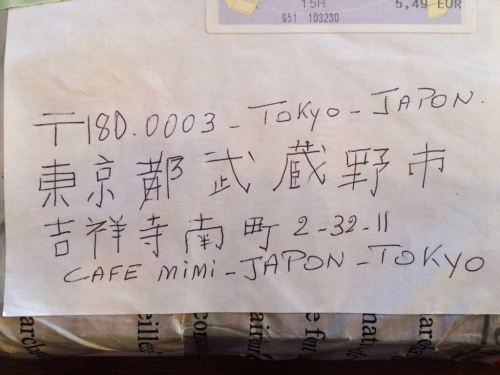 15H 5,49 EUR
G51 103230
〒180.0003 - TOKYO - JAPON.
東京都武蔵野市
吉祥寺南町 2-32-11
CAFE MIMI - JAPON - TOKYO